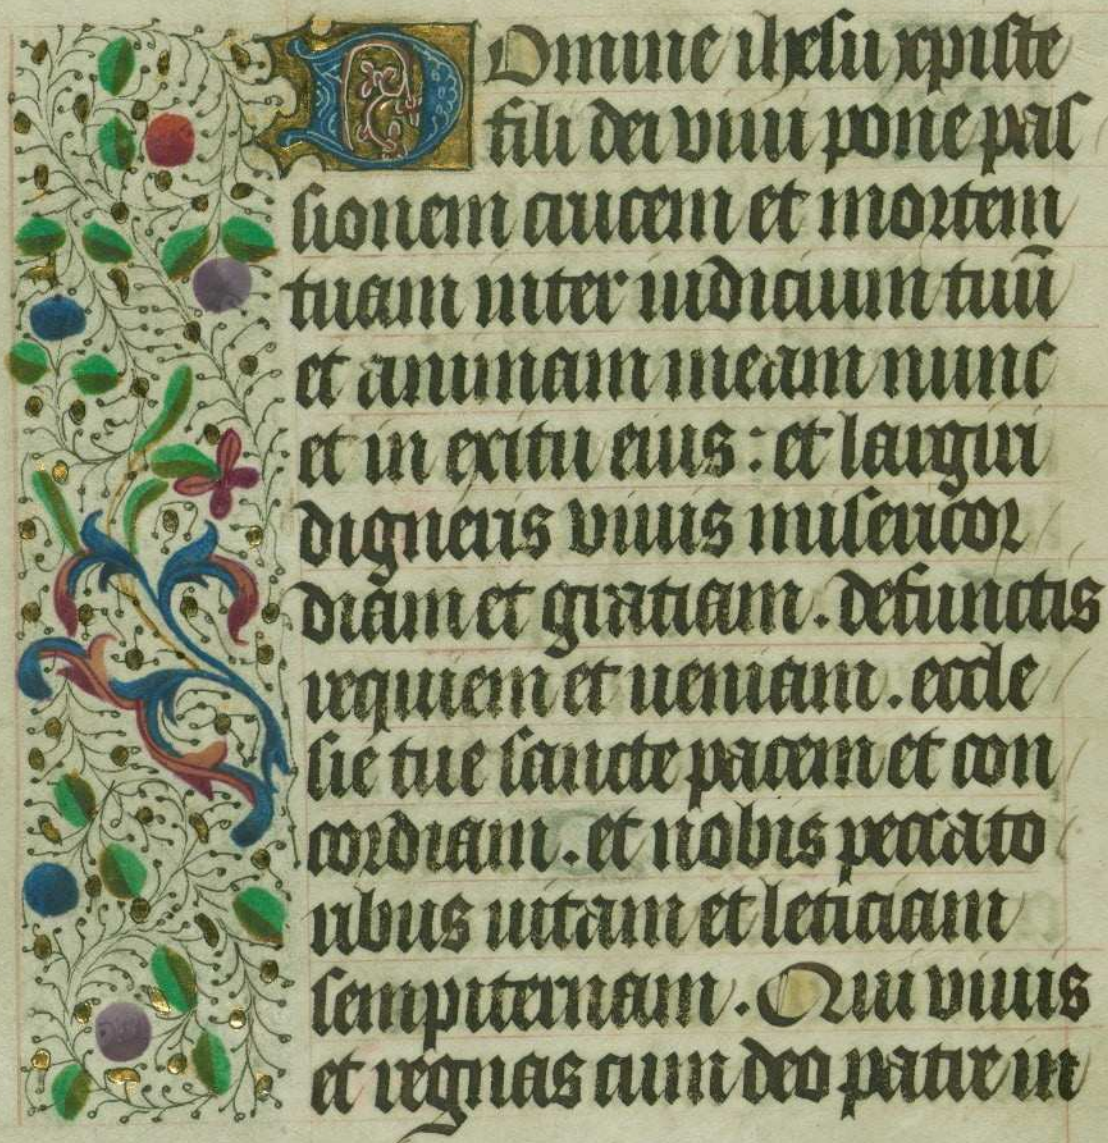 Domine ihesu xpiste
fili dei viui pone pas
sionem crucem et mortem
tuam inter iudicium tuū
et animam meam nunc
et in exitu eius : et largiri
digneris viuis misericor
diam et gratiam . defunctis
requiem et ueniam . eccle
sie tue sancte pacem et con
cordiam . et nobis peccato
ribus uitam et leticiam
sempiternam . Qui viuis
et regnas cum deo patre in